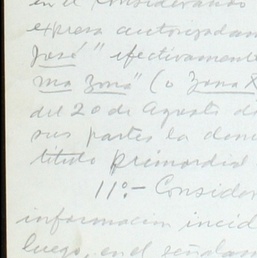 en el considerando
expresa autorizadam
José" efectivamente
ma Zona" (o Zona X
del 20 de Agosto d
sus partes la don
título primordial
11º.- Consider
informacion incid
luego, en el señalam